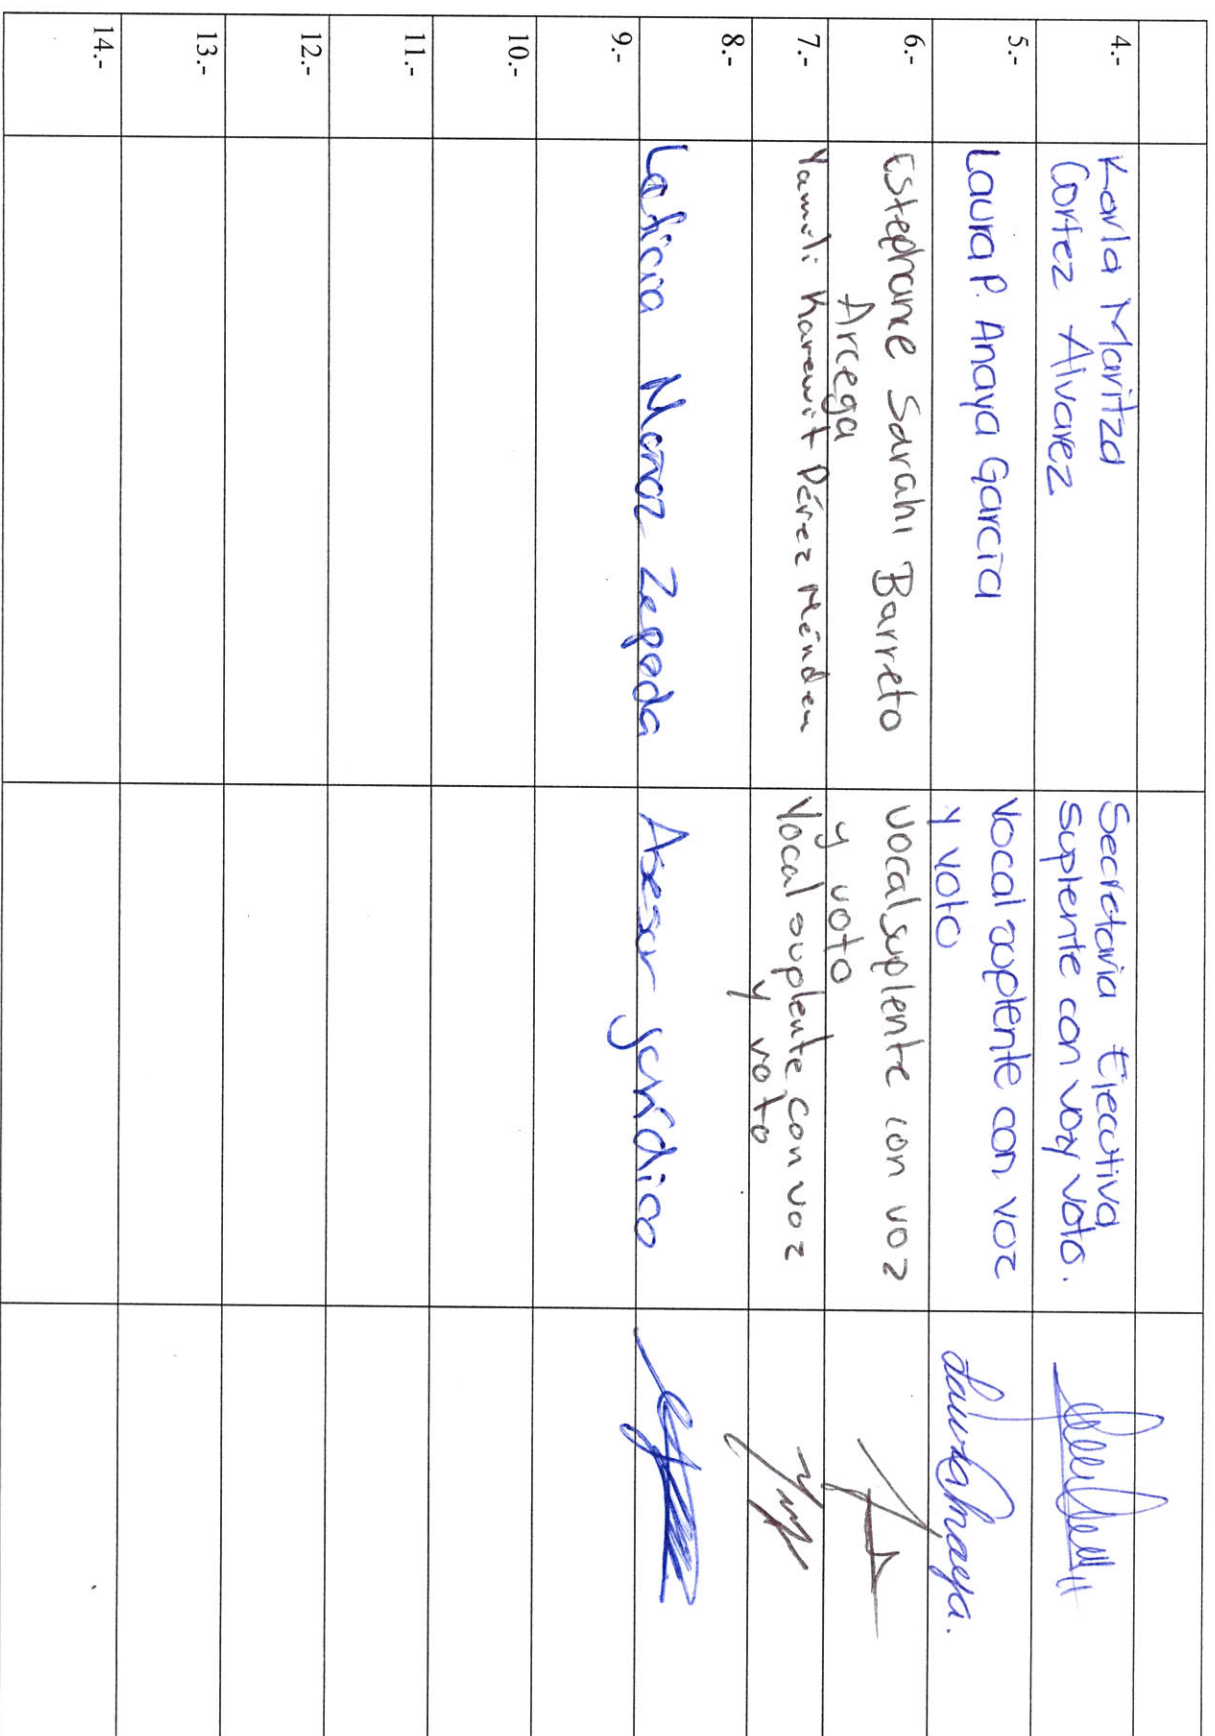 4.-
Karla Maritza
Cortez Alvarez
Secretaria Ejecutiva
suplente con voz y voto.
5.-
Laura P. Anaya García
Vocal suplente con voz
y voto
6.-
Estephanie Sarahi Barreto
Arcega
vocal suplente con voz
y voto
7.-
Pérez Méndez
Vocal suplente con voz
y voto
8.-
Zepeda
Asesor jurídico
9.-
10.-
11.-
12.-
13.-
14.-